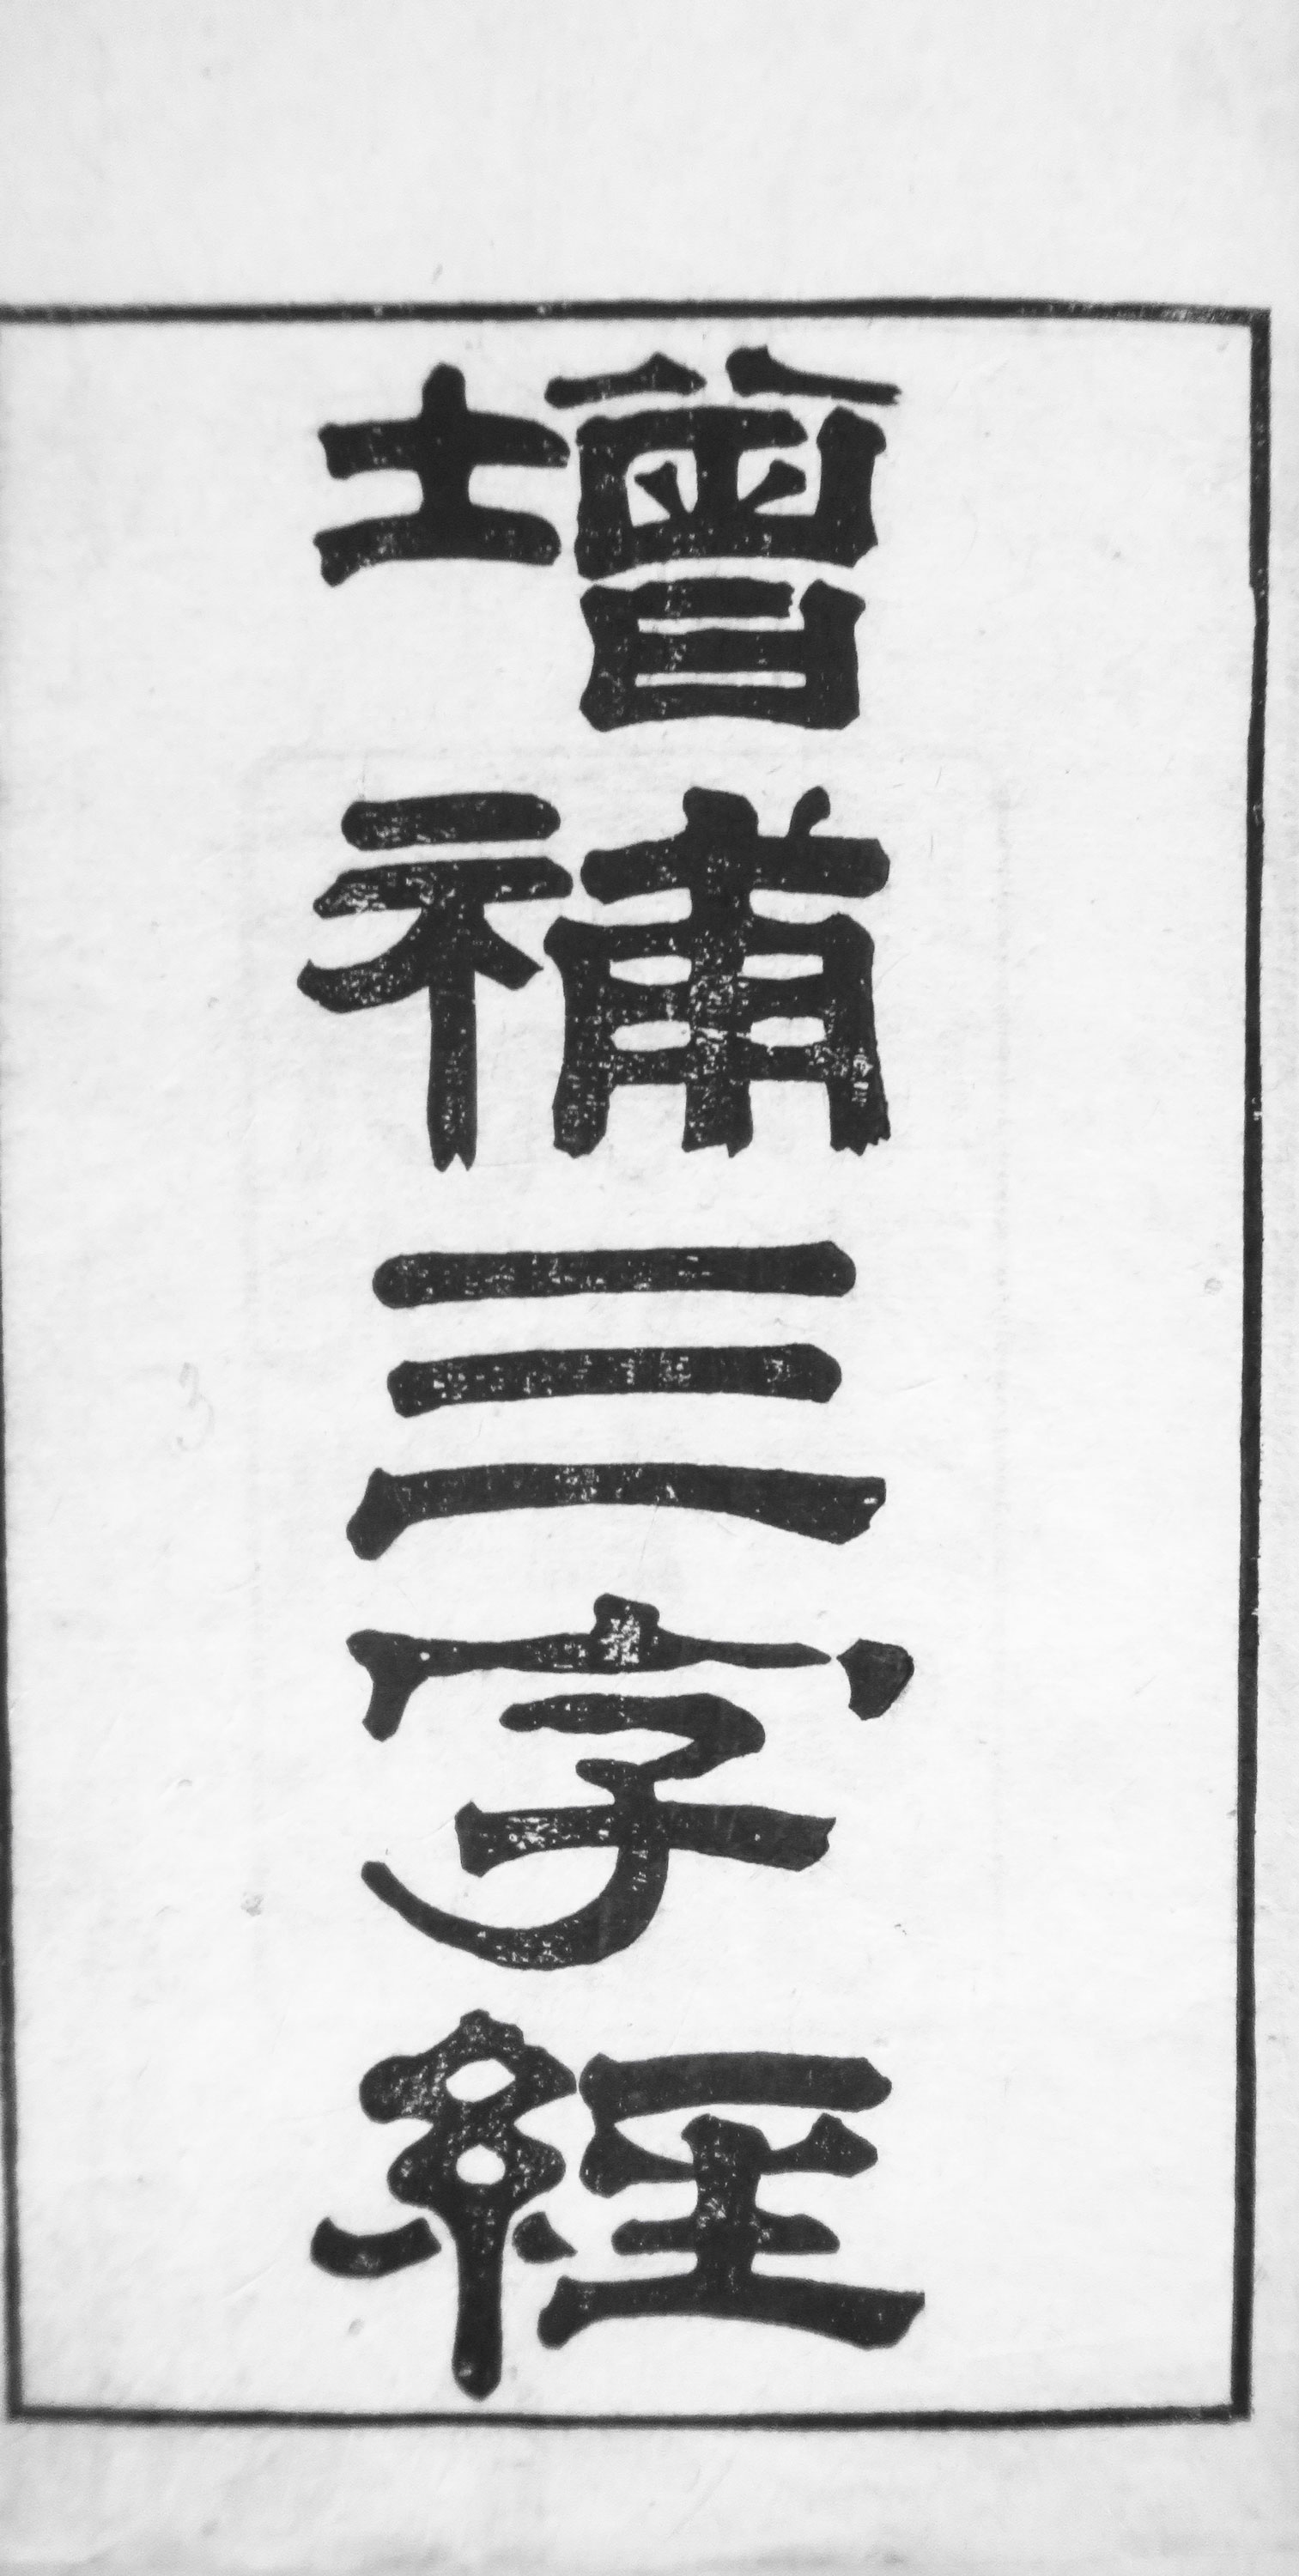 增補三字經